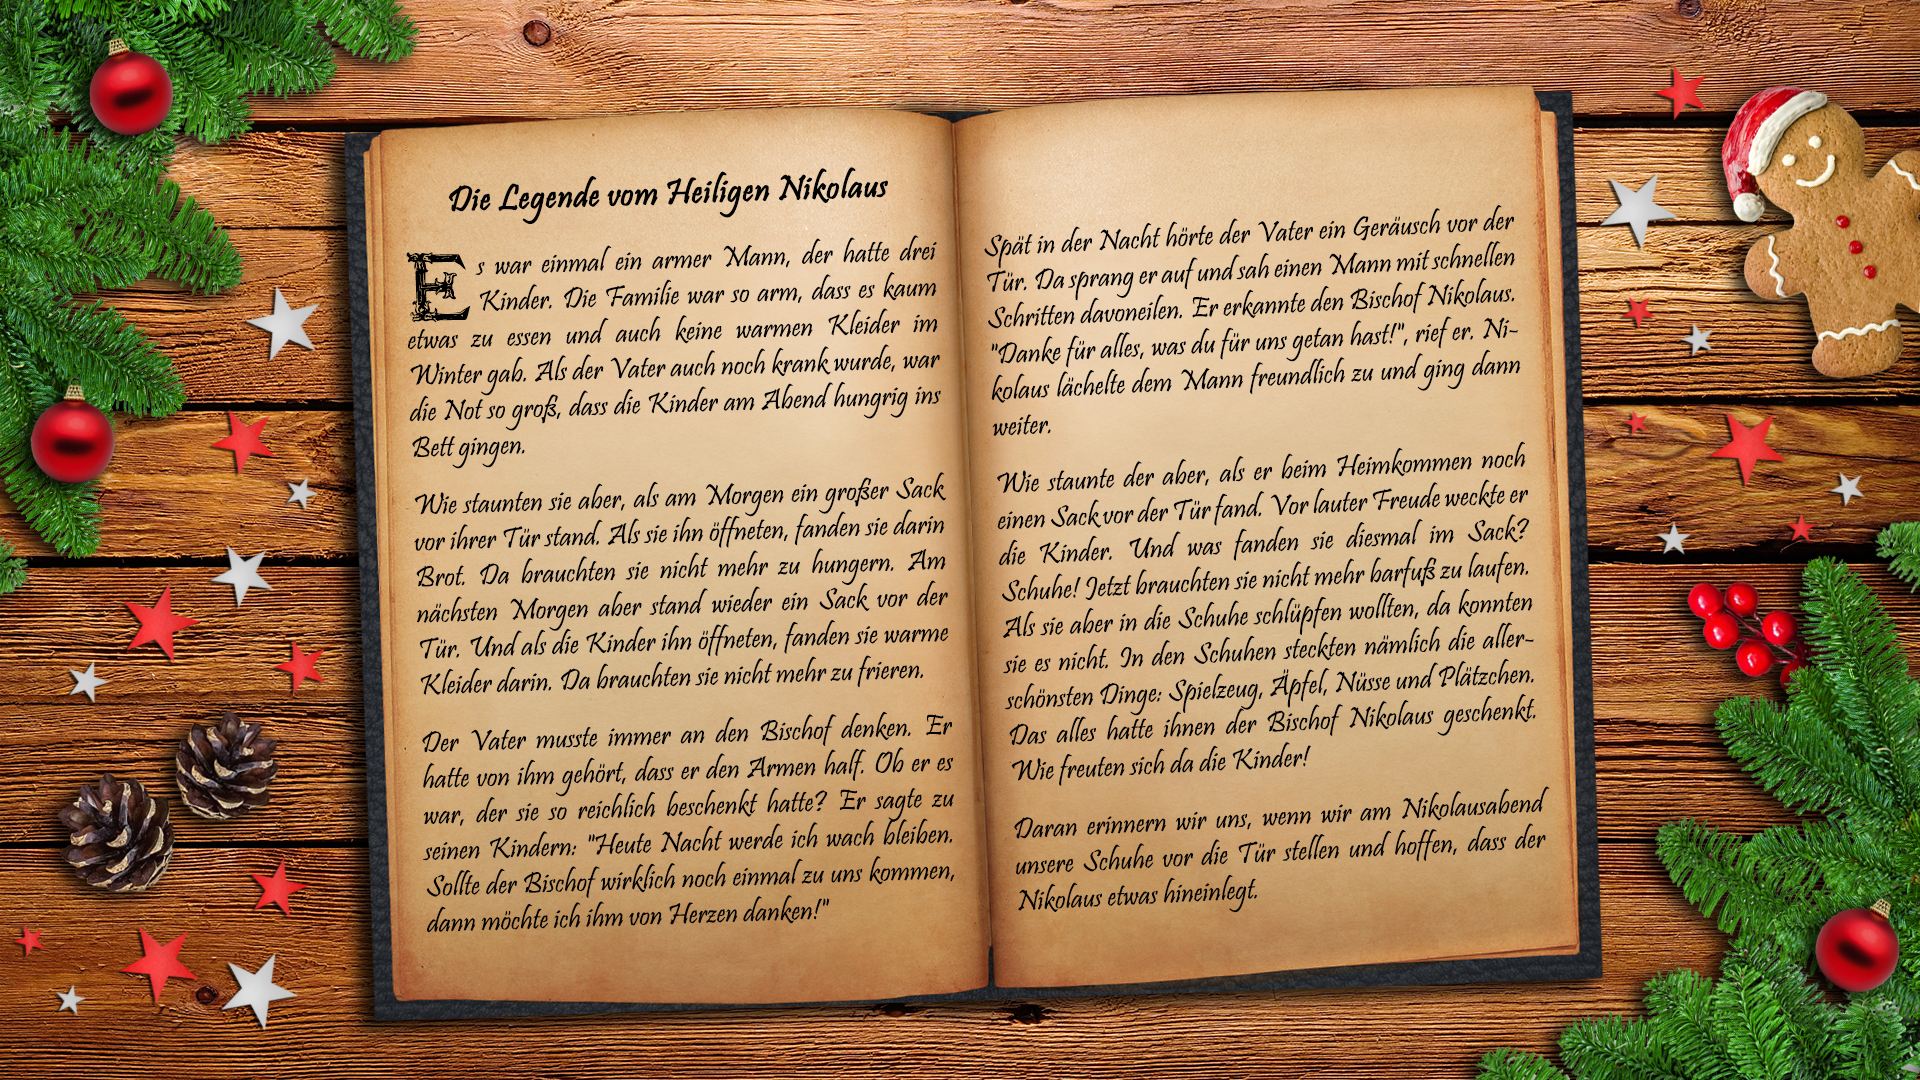 Die Legende vom Heiligen Nikolaus
Es war einmal ein armer Mann, der hatte drei
Kinder. Die Familie war so arm, dass es kaum
etwas zu essen und auch keine warmen Kleider im
Winter gab. Als der Vater auch noch krank wurde, war
die Not so groß, dass die Kinder am Abend hungrig ins
Bett gingen.
Wie staunten sie aber, als am Morgen ein großer Sack
vor ihrer Tür stand. Als sie ihn öffneten, fanden sie darin
Brot. Da brauchten sie nicht mehr zu hungern. Am
nächsten Morgen aber stand wieder ein Sack vor der
Tür. Und als die Kinder ihn öffneten, fanden sie warme
Kleider darin. Da brauchten sie nicht mehr zu frieren.
Der Vater musste immer an den Bischof denken. Er
hatte von ihm gehört, dass er den Armen half. Ob er es
war, der sie so reichlich beschenkt hatte? Er sagte zu
seinen Kindern: "Heute Nacht werde ich wach bleiben.
Sollte der Bischof wirklich noch einmal zu uns kommen,
dann möchte ich ihm von Herzen danken!"
Spät in der Nacht hörte der Vater ein Geräusch vor der
Tür. Da sprang er auf und sah einen Mann mit schnellen
Schritten davoneilen. Er erkannte den Bischof Nikolaus.
"Danke für alles, was du für uns getan hast!", rief er. Ni-
kolaus lächelte dem Mann freundlich zu und ging dann
weiter.
Wie staunte der aber, als er beim Heimkommen noch
einen Sack vor der Tür fand. Vor lauter Freude weckte er
die Kinder. Und was fanden sie diesmal im Sack?
Schuhe! Jetzt brauchten sie nicht mehr barfuß zu laufen.
Als sie aber in die Schuhe schlüpfen wollten, da konnten
sie es nicht. In den Schuhen steckten nämlich die aller-
schönsten Dinge: Spielzeug, Äpfel, Nüsse und Plätzchen.
Das alles hatte ihnen der Bischof Nikolaus geschenkt.
Wie freuten sich da die Kinder!
Daran erinnern wir uns, wenn wir am Nikolausabend
unsere Schuhe vor die Tür stellen und hoffen, dass der
Nikolaus etwas hineinlegt.